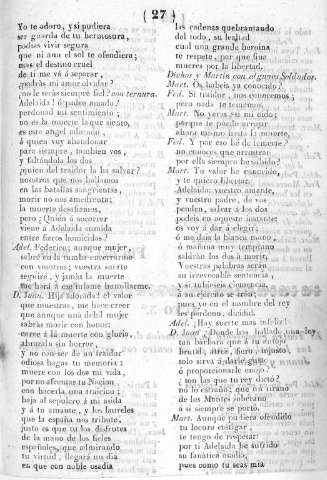 ( 27 )
Yo te adoro, y si pudiera
ser guarda de tu hermosura,
podias vivir segura
que ni aun el sol te ofendiera;
mas el destino cruel
de ti me vá á separar,
¿podrás mi amor olvidar?
¿no le serás siempre fiel? con ternura.
Adelaida! ó padre amado?
perdonad mi sentimiento;
no es la muerte la que siento,
es este angel
á quien voy abandonar
para siempre,
y faltándola los dos
¿quien del traidor la ha salvar?
nosotros que nos hallamos
en las batallas sangrientas,
morir no nos amedrenta;
la muerte desafiamos,
pero; ¿Quién á socorrer
viene á Adelaida sumida
entre fieros homicidas?
Adel. Federico; aunque muger,
sabré en la tumba encerrarme
con vosotros; vuestra suerte
seguiré, y jamás la muerte
me hará á ese infame humillarme.
D. Juan. Hija adorada! el valor
que muestras, me hace creer
que aunque una debil muger
sabrás morir con honor:
corre á la muerte con gloria,
abrazala sin horror,
y no con ser de un traidor
odiosa hagas tu memoria;
muere con los dos mi vida,
por no afrentar tu Nacion
con hacerla una traicion;
baja al sepulcro á mi soida
y á tu amante, y los laureles
que la españa nos tribute,
justo es que los disfrutes
de la mano de los fieles
españoles, que admirando
tu virtud, llegará un dia
en que con noble osadia
las cadenas quebrantando
del todo, su lealtad
cual una grande heroina
te respete, por que fue
mueres por la libertad.
Dichos y Martin con algunos Soldados.
Mart. O, habeis ya conocido?
Fed. Si traidor; nos conocemos;
pero nada te tenemos.
Mart. No veras en mi oido;
porque te puedo arrojar
ahora mismo hasta la muerte,
Fed. Y por eso he de temerte?
no conoces que arrostrar
por ella siempre he sabido?
Mart. Tu valor he conocido,
y te quiero libertar.
Adelaida: vuestro amante,
y vuestro padre, de vos
penden, salvar á los dos
podeis en aqueste instante:
es voy á dar á elegir;
ó me dais la blanca mano,
ó mañana muy temprano
saldrán los dos á morir.
Vuestras palabras serán
su irrevocable sentencia,
y si tubieseis clemencia,
á su ejercito se irán;
pues yo en el nombre del rey
les perdono, decidid.
Adel. ¡Hay suerte mas infeliz!
D. Juan ¿Donde has hallado una ley
tan barbara que á tu
brutal, atroz, fiero, injusto,
solo sirva á darle gusto
ó proporcionarle enojo?
¿son las que tu rey dictó?
no lo estraño; que á un
de los Montes soberano
á si siempre se portó.
Mart. Aunque pudiera ofendido
tu locura castigar,
te tengo de respetar:
por ti Adelaida he sufrido
su fanática osadia,
pues como tu seas mia